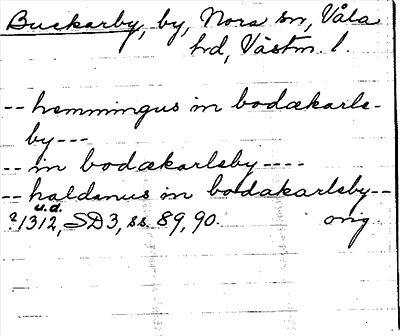 Buckarby, by, Nora sn, Våla
hd, Västm. l.
-- hemmingus in bodækarls-
by---
-- in bodækarlsby----
-- haldanus in bodakarlsby--
u.d.
?1312, SD3, ss. 89, 90. orig.